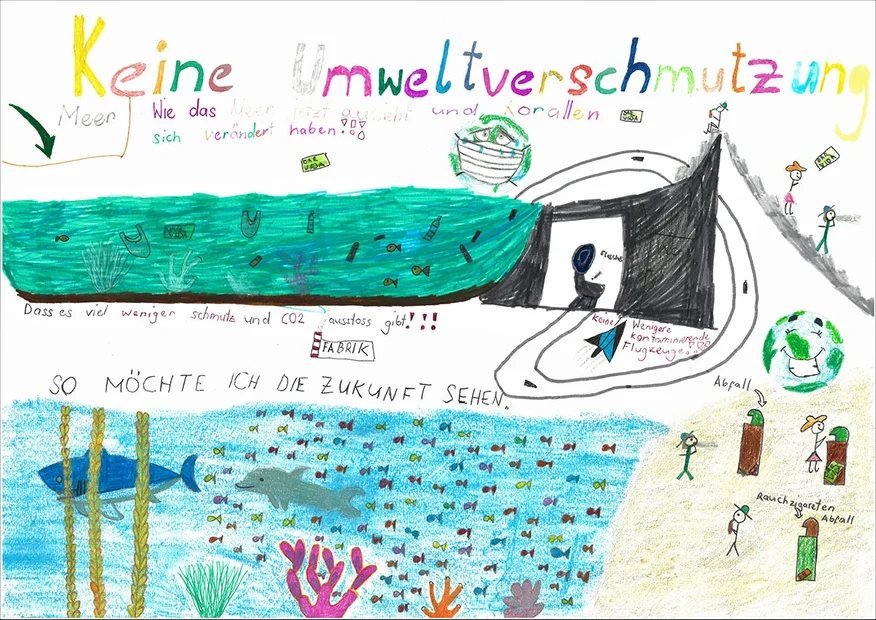 Keine Umweltverschmutzung
Meer
Wie das Meer jetzt aussieht und Korallen
sich verändert haben!!!
DAR
VIDA
Flasche
Dass es viel weniger schmutz und CO2 ausstoss gibt!!!
FABRIK
keine
Wenigere
kontaminierende
Flugzeuge!!!
SO MÖCHTE ICH DIE ZUKUNFT SEHEN.
Abfall
Rauchzigareten
Abfall